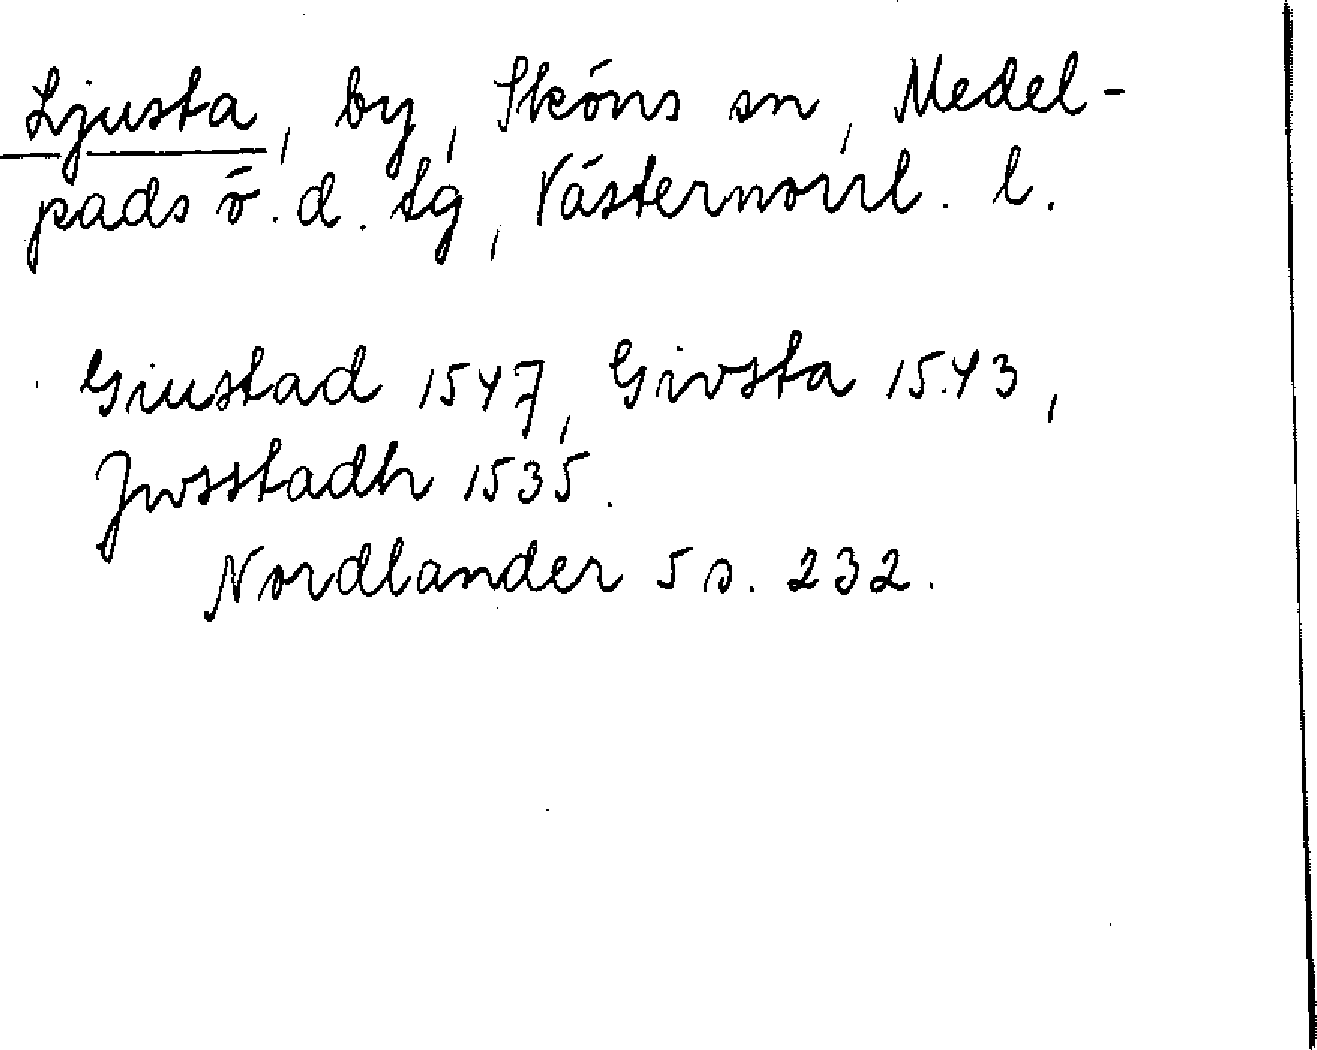 Ljusta, by, Sköns sn, Medel-
pads ö. d. tg, Västernorrl. l.
Giustad 1547, Givsta 1543,
Jwsstadh 1535.
Nordlander 5 s. 232.